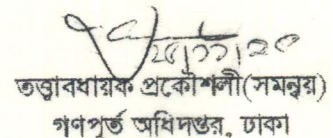 ২৫/১১/২০
তত্ত্বাবধায়ক প্রকৌশলী(সমন্বয়)
গণপূর্ত অধিদপ্তর, ঢাকা